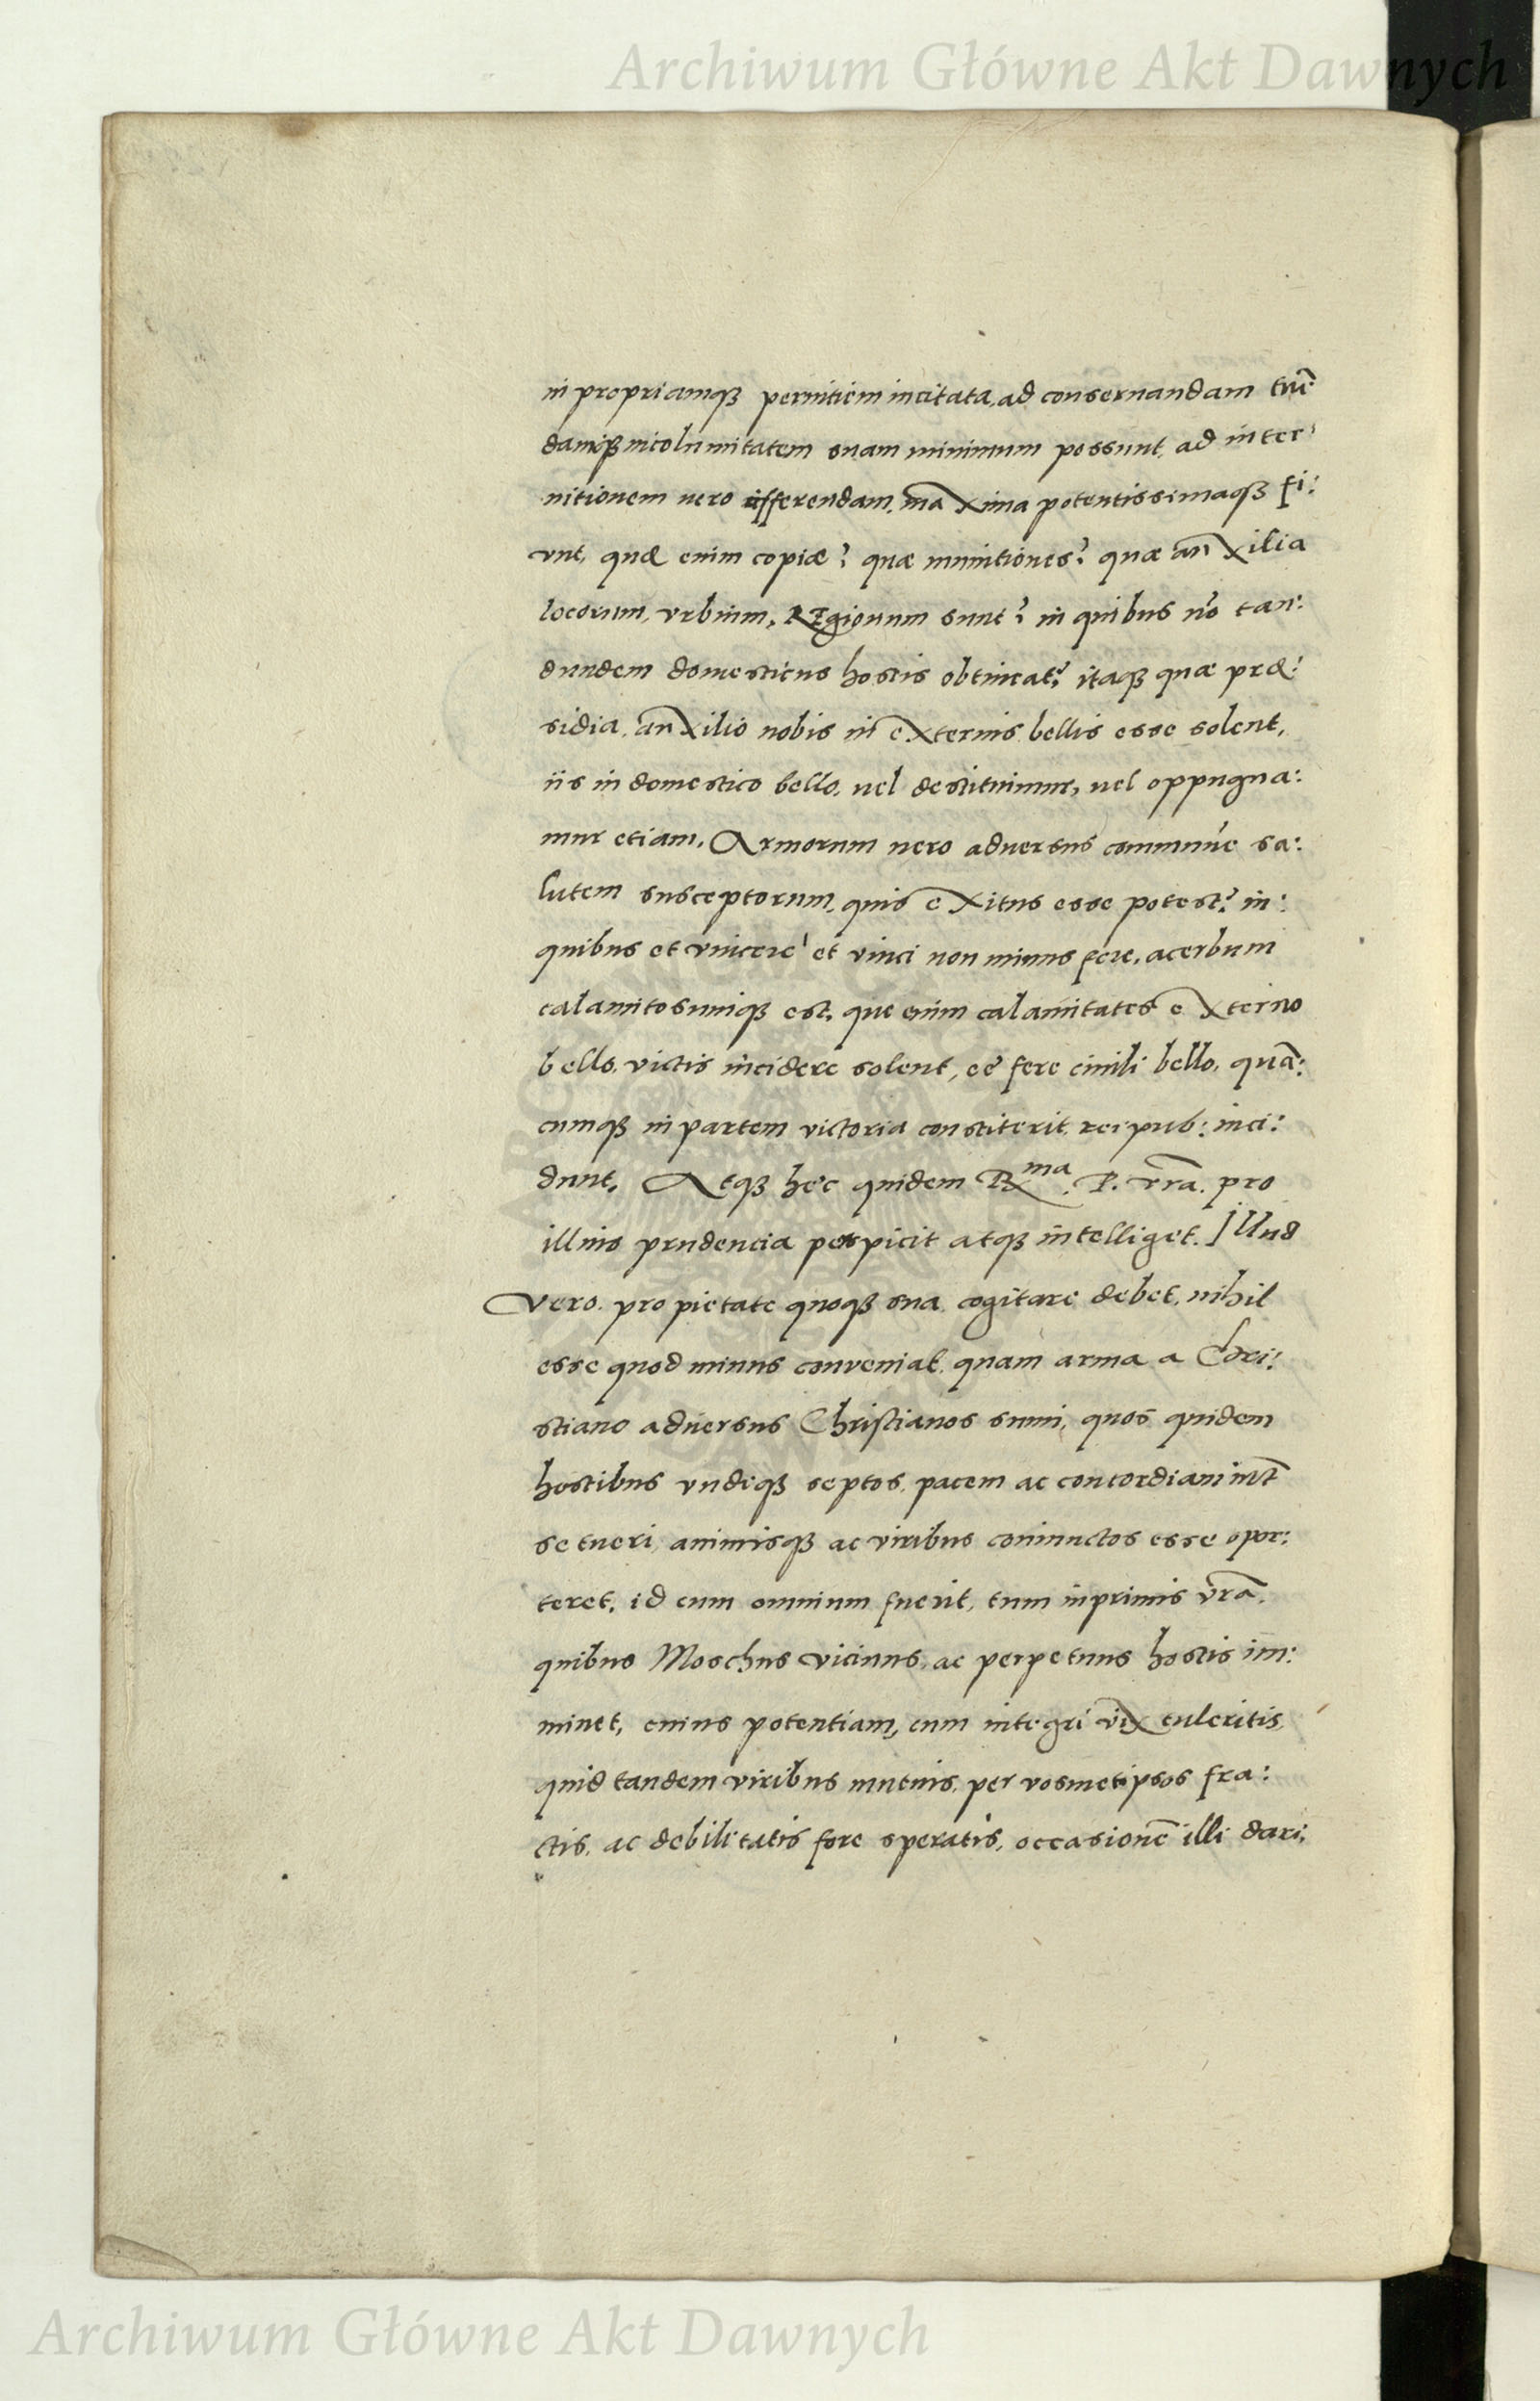 Archiwum Główne Akt Dawnych
in propriamq₃ pernitiem incitata, ad conseruandam tuē
damq₃ incolumitatem suam minimum possunt, ad inter
nitionem uero afferendam, maxima potentissimaq₃ fi:
unt, quæ enim copiæ? quæ munitiones? quæ auxilia
locorum, vrbium, Regionum sunt? in quibus nō tan:
dundem domesticus hostis obtineat? itaq₃ quæ præ:
sidia, auxilio nobis in externis bellis esse solent,
iis in domestico bello, uel destituimur, uel oppugna:
mur etiam. Armorum uero aduersus communē sa:
lutem susceptorum, quis exitus esse potest? in:
quibus et vincere et vinci non minus fere, acerbum
calamitosumq₃ est, que enim calamitates externo
bello, victis incidere solent, eę fere ciuili bello, quā:
cumq₃ in partem victoria constiterit, reipub: inci:
dunt. Atq₃ hęc quidem R^ma. P. vra. pro
illius prudencia perspicit atq₃ intelliget. Illud
Vero. pro pietate quoq₃ sua, cogitare debet, nihil
esse quod minus conveniat, quam arma a Chri:
stiano aduersus Christianos sumi, quos quidem
hostibus vndiq₃ septos, pacem ac concordiam int̄
se tueri, animisq₃ ac viribus coniunctos esse opor:
teret, id cum omnium fuerit, tum inprimis vrā.
quibus Moschus vicinus, ac perpetuus hostis im:
minet, cuius potentiam, cum integri vix tuleritis,
quid tandem viribus mutuis, per vosmetipsos fra:
ctis, ac debilitatis fore speratis, occasionē illi dari,
Archiwum Główne Akt Dawnych